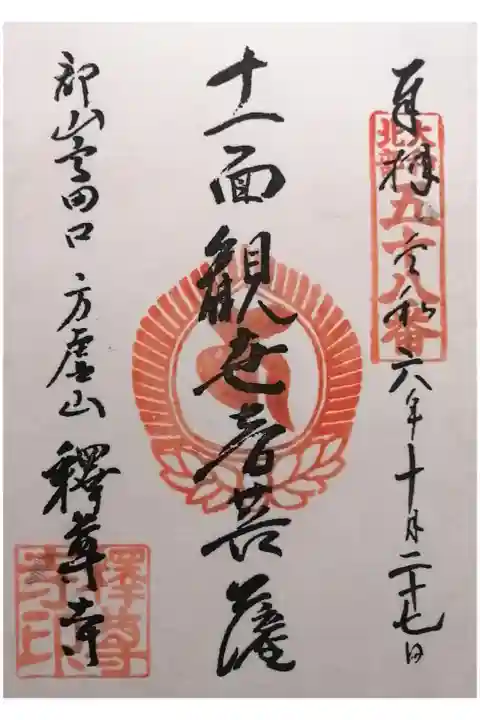 奉拝 令和六年十月二十七日
大和
北部
五十八番
十一面観世音菩薩
郡山高田口 方虚山 釋尊寺
釋尊
寺印